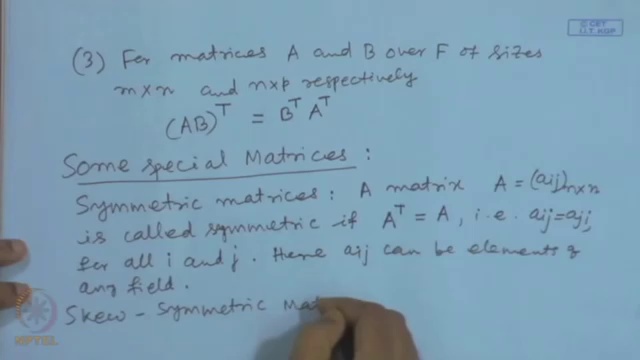 © CET
I.I.T. KGP
(3) For matrices A and B over F of sizes
m×n and n×p respectively
(AB)ᵀ = Bᵀ Aᵀ
Some special Matrices :
Symmetric matrices : A matrix A = (aij)n×n
is called symmetric if Aᵀ = A, i.e. aij = aji,
for all i and j. Here aij can be elements of
any field.
Skew - Symmetric Mat
NPTEL